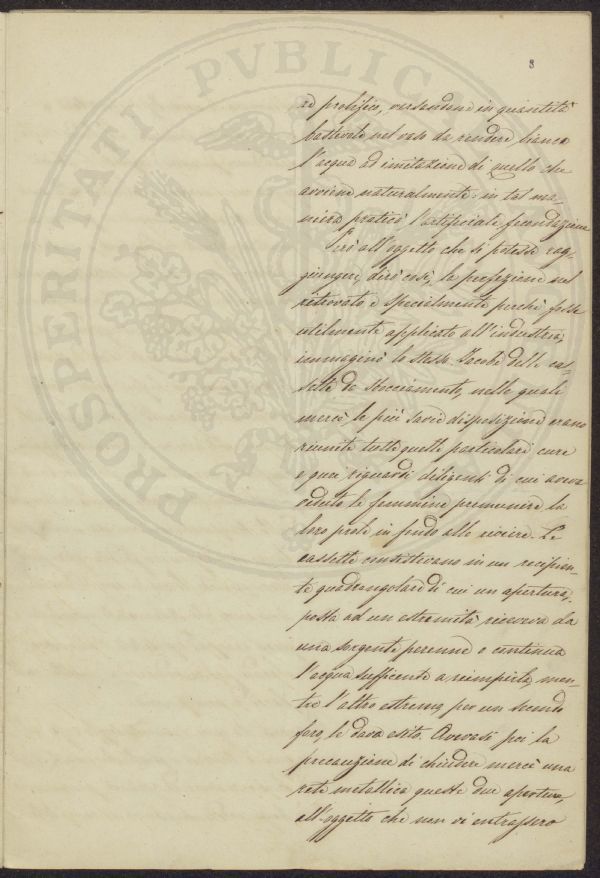 8
PROSPERITATI PVBLICAE
re prolifico, versandone in quantità
bastevole nel vaso da rendere bianca
l'acqua ad imitazione di quello che
avviene naturalmente: in tal ma-
niera praticò l'artificiale fecondazione
Però all'oggetto che si potesse rag-
giungere, dirò così, la perfezione nel
ritrovato e specialmente perchè fosse
utilmente applicato all'industria,
immaginò lo stesso Jacobi delle cas-
sette da sbocciamento, nelle quali
mercè le più savie disposizioni erano
riunite tutte quelle particolari cure
e quei riguardi diligenti di cui aveva
veduto le femmine premunire la
loro prole in fondo alle riviere. Le
cassette consistevano in un recipien-
te quadrangolare di cui un apertura,
posta ad un estremità riceveva da
una sorgente perenne e continua
l'acqua sufficente a riempirla, men-
tre l'altro estremo, per un secondo
foro, le dava esito. Avevasi poi la
precauzione di chiudere mercè una
rete metallica queste due aperture,
all'oggetto che non vi entrassero